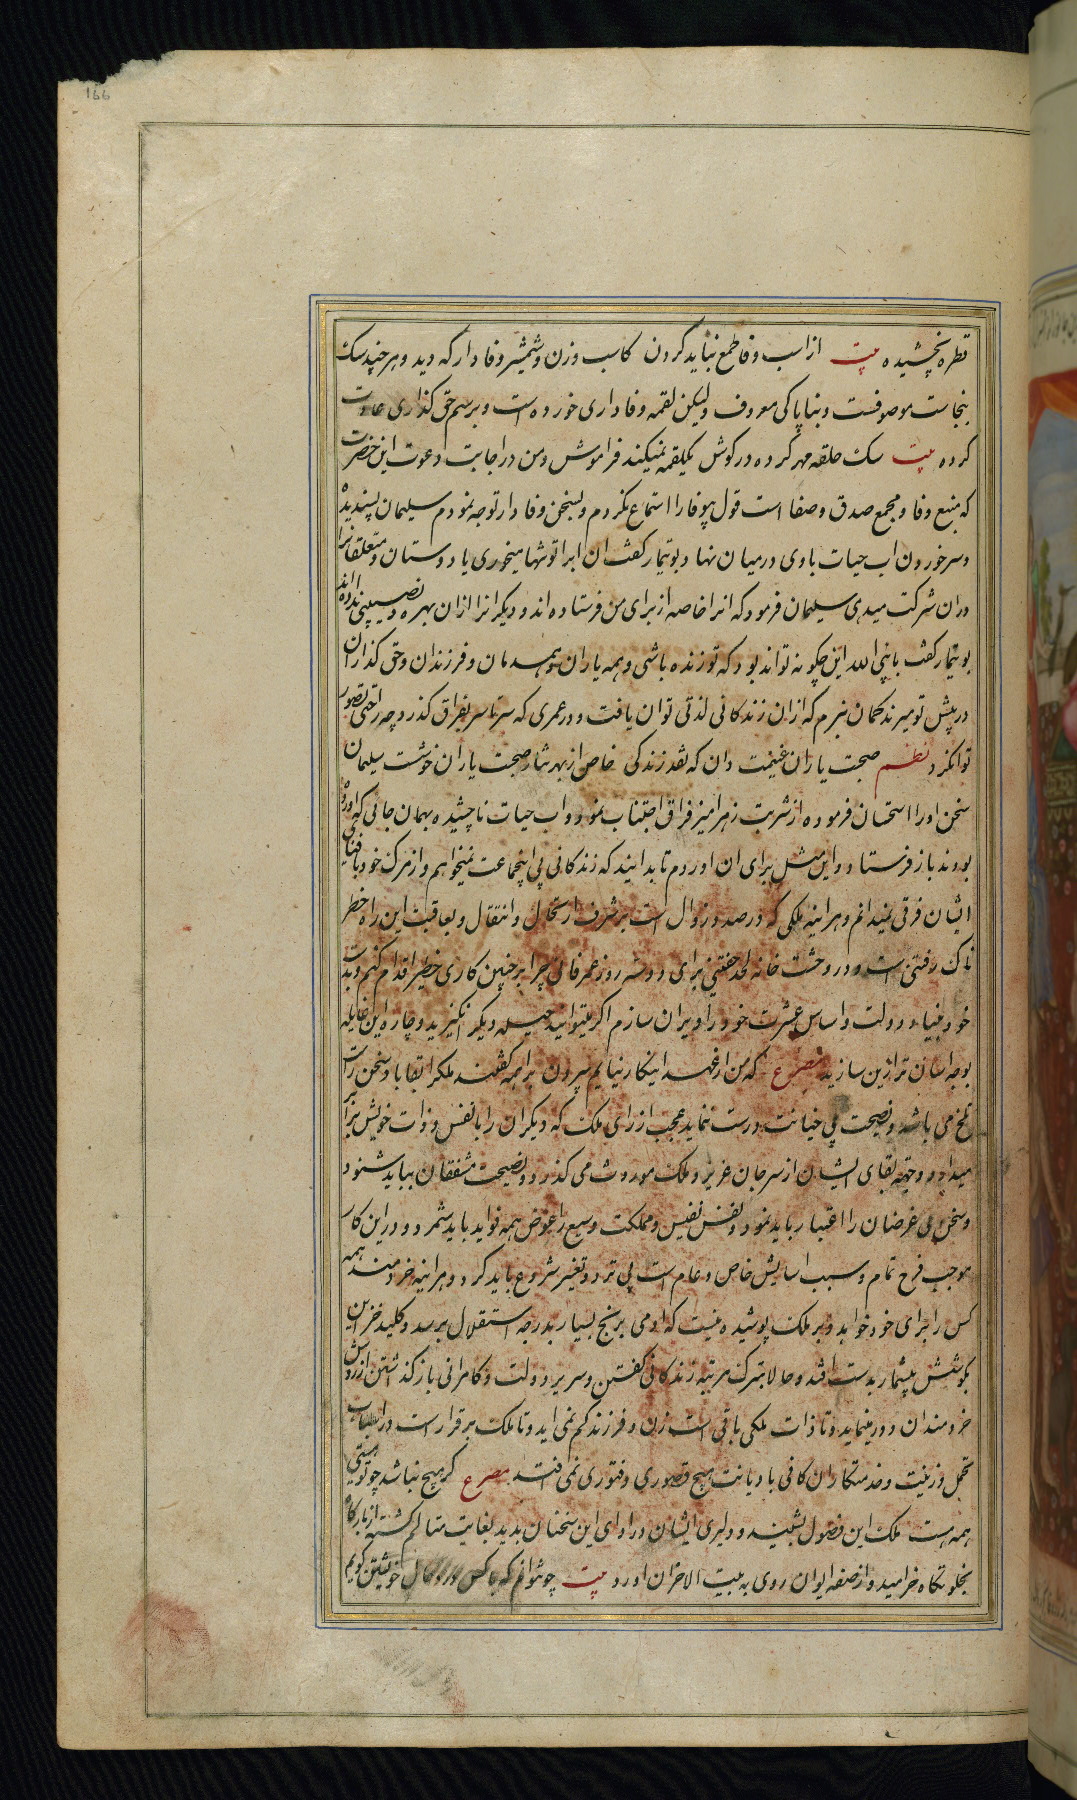 166
قطره نچشیده بیت از اسب وفا طمع نباید کردن کاسب و زن و شمشیر وفادار که دید و هر چند سک
بنجاست موصوفست و بناپاکی معروف ولیکن لقمه وفاداری خورده است و برسم حق کذاری عادت
کرده بیت سک حلقه مهر کرده در کوش یکلقمه نمیکند فراموش و من در اجابت دعوت این حضرت
که منبع وفا و مجمع صدق و صفا است قول بیوفا را استماع نکردم و بسخن وفادار توجه نمودم سلیمان پسندیده
و سر خوردن اب حیات با وی در میان نهاد بوتیمار کفت ان ابرا تو تنها میخوری یا دوستان و متعلقانرا
دران شرکت میدهی سلیمان فرمود که انرا خاصه از برای من فرستاده اند و دیکرانرا ازان بهره و نصیبی نداده اند
بوتیمار کفت یا نبی الله این چکونه تواند بود که تو زنده باشی و همه یاران و همدمان و فرزندان و حق کذاران
در پیش تو میرند کمان نبرم که ازان زندکانی لذتی توان یافت و در عمری که سرتاسر بفراق کذرد چه راحتی تصور
توانکرد نظم صحبت یاران غنیمت دان که نقد زندکی خاص از بهر نثار صحبت یاران خوشست سلیمان
سخن او را استحسان فرموده از شربت زهرامیز فراق اجتناب نمود و اب حیات ناچشیده بهمان جائی که اورده
بودند باز فرستاد و این مثل برای ان اوردم تا بدانید که زندکانی بی اینجماعت نمیخواهم و از مرک خود تا فنای
ایشان فرقی نمیدانم و هراینه ملکی که در صدد زوال است بر شرف ارتحال و انتقال و بعاقبت این راه خطر
ناک رفتنی است و در وحشت خانه لحد خفتنی برای دو سه روز عمر فانی چرا بر چنین کاری خطیر اقدام کنم و بدست
خود بنیاد دولت و اساس عشرت خود را ویران سازم اکر میتوانید حیله دیکر انکیزید و چاره این غایله
بوجه اسان تر ازین سازید مصرع که من از عهده اینکار نیایم بیرون براهمه کفتند ملکرا بقا باد سخن راست
تلخ می باشد و نصیحت بی خیانت درست نماید عجب از رای ملک که دیکران را با نفس و ذات خویش برابر
میدارد و جهة بقای ایشان از سر جان عزیز و ملک موروث می کذرد و نصیحت مشفقان بباید شنود
و سخن بی غرضان را اعتبار باید نمود و نفس نفیس و مملکت وسیع را عوض همه فواید باید شمرد و در این کار
موجب فرح تمام و سبب اسایش خاص و عام است بی تردد و تغیر شروع باید کرد و هراینه خردمند همه
کس را برای خود خواهد و بر ملک پوشیده نیست که ادمی برنج بسیار بدرجه استقلال برسد و کلید خزاین
بکوشش بیشمار بدست افتد و حالا بترک مرتبه زندکانی کفتن و سریر دولت و کامرانی باز کذاشتن از روش
خردمندان دور مینماید و تا ذات ملکی باقی است زن و فرزند کم نمی اید و تا ملک برقرار است در اسباب
تجمل و زینت و خدمتکاران کافی با دیانت هیچ قصوری و فتوری نمی افتد مصرع کر هیچ نباشد چو تو هستی
همه هست ملک این فصول بشنید و دلیری ایشان در ادای این سخنان بدید بغایت متالم کشته از بارکاه
بخلوتکاه خرامید و از صفه ایوان روی به بیت الاحزان اورد بیت چو نتوانم که با کس درد حال خویشتن کویم